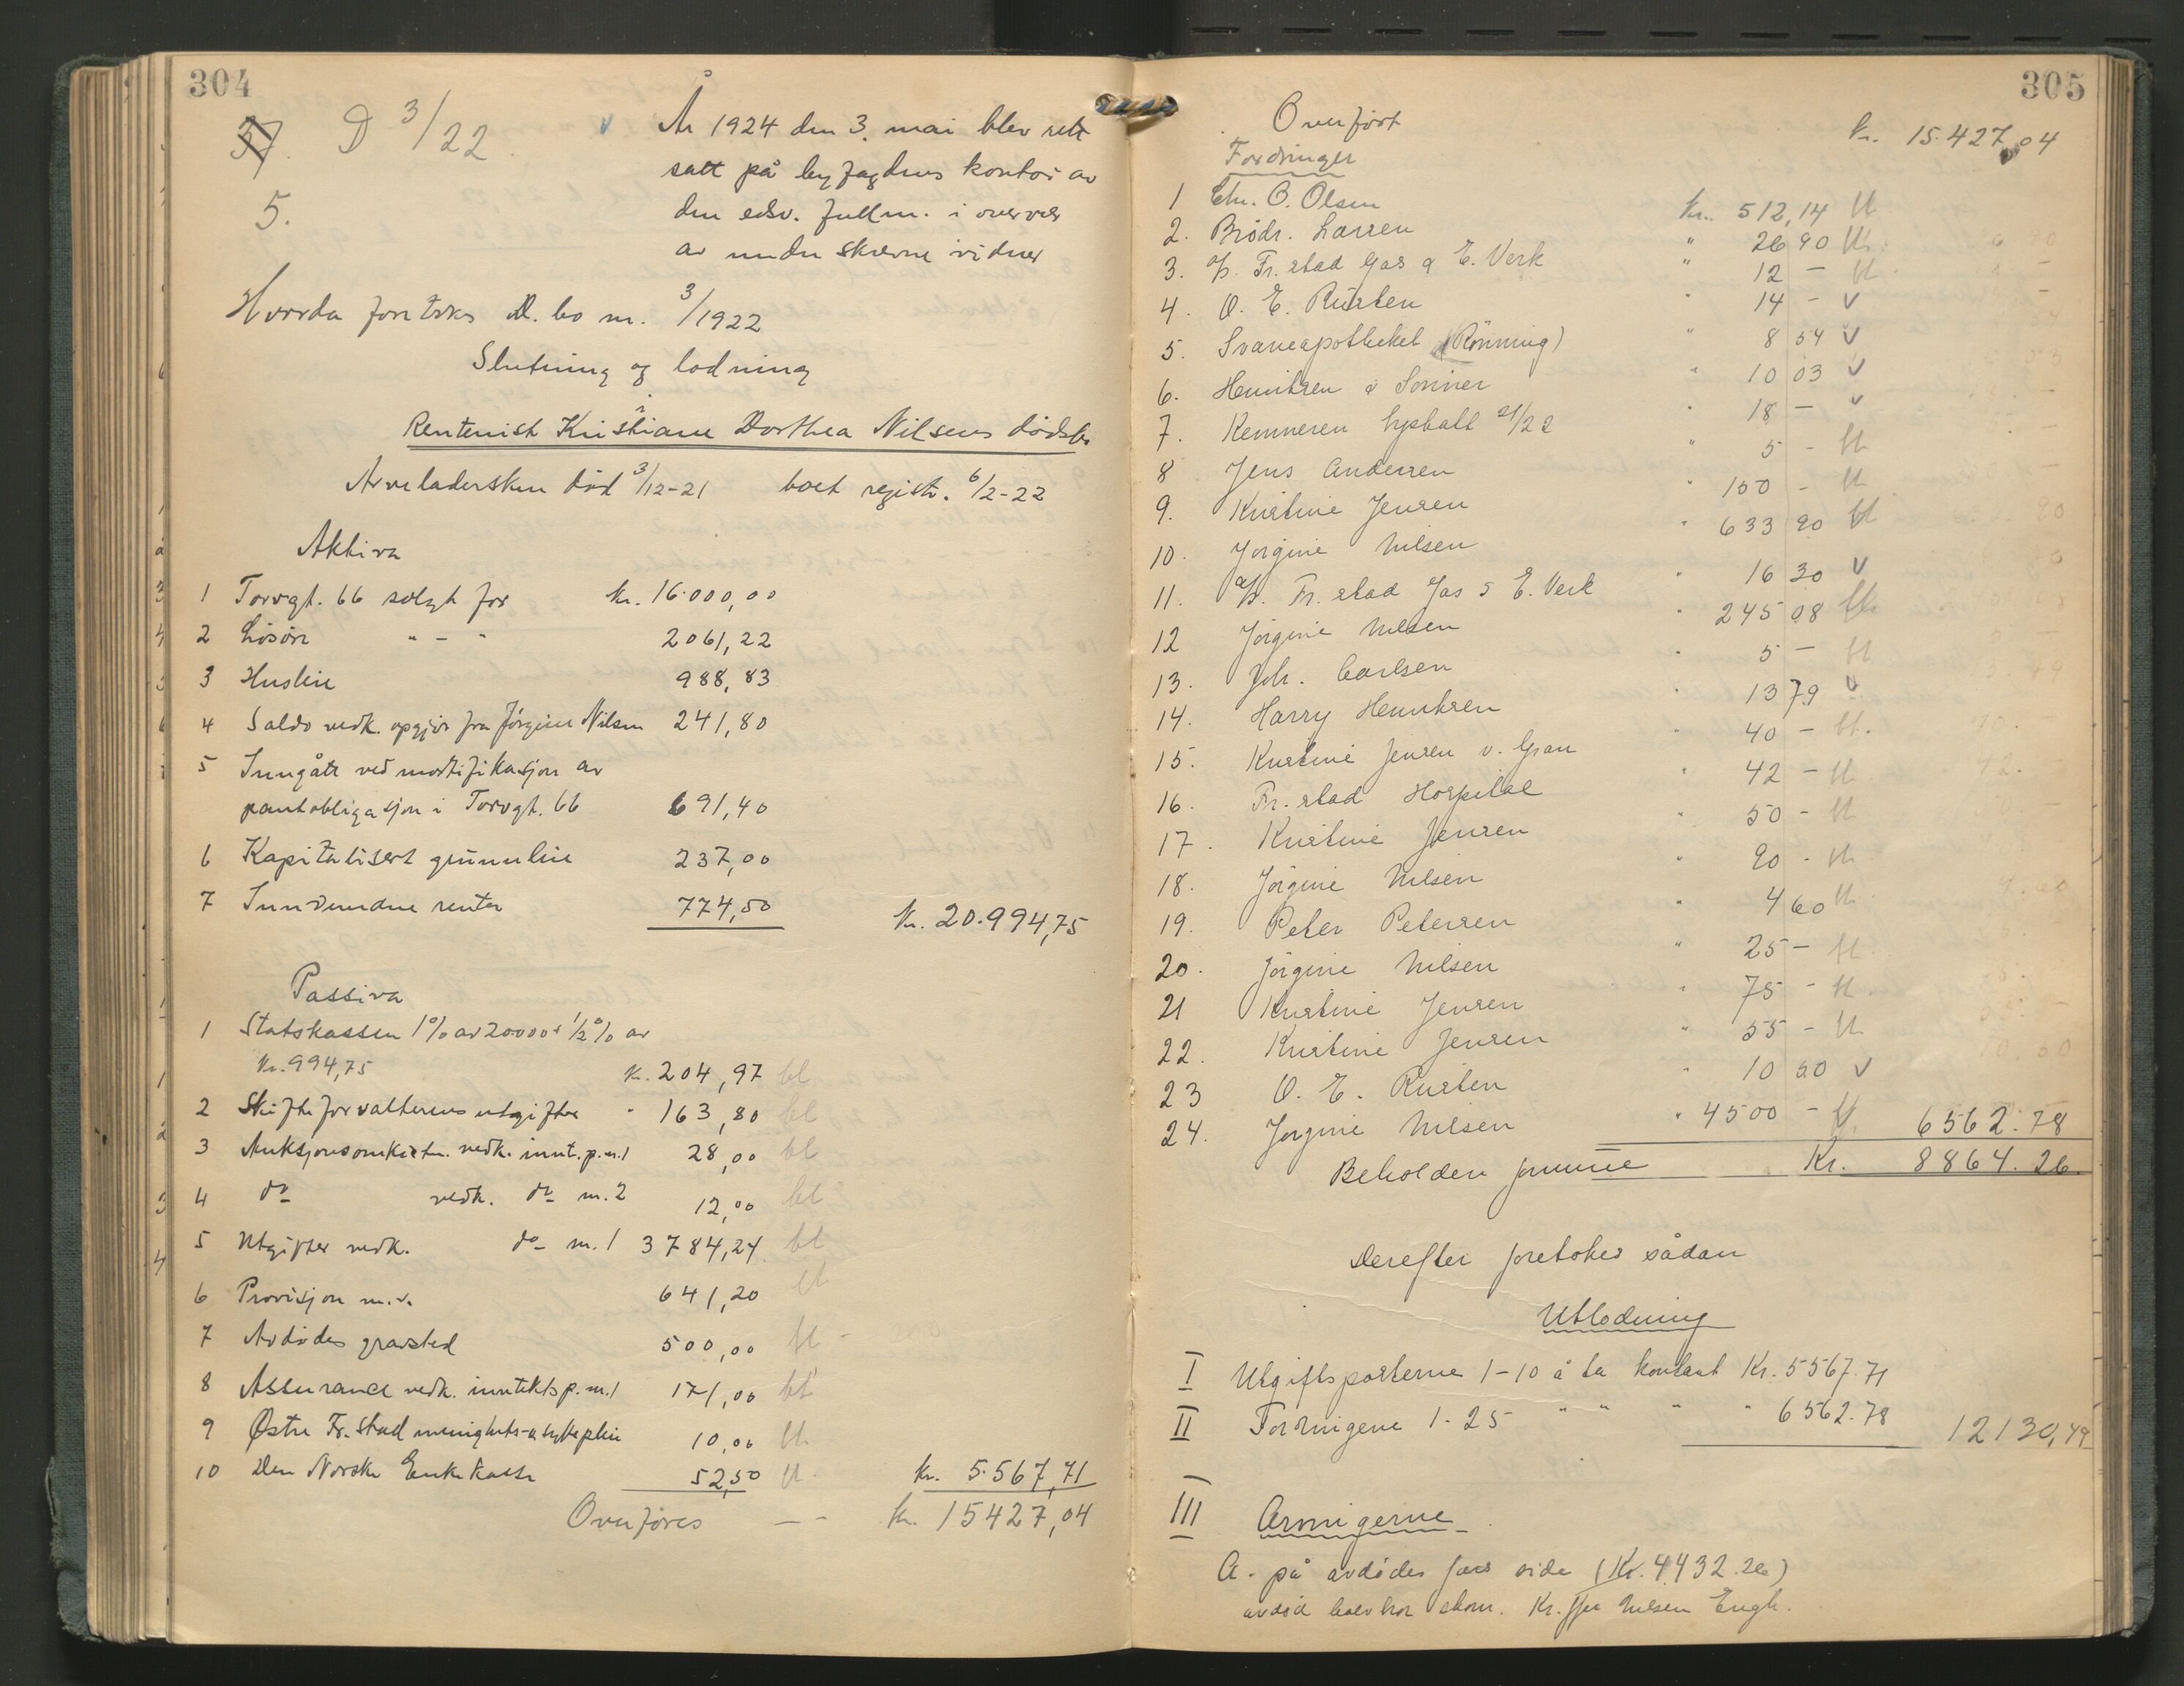 304
37. D 3/22
5.
År 1924 den 3. mai blev rett
satt på byfogdens kontor av
den edsv. fullm. i overvær
av underskrevne vidner
Hvorda foretokes D. bo nr. 3/1922
Slutning og lodning
Rentenist Kristiane Dorthea Nilsens dødsbo
Arveladersken død 3/12-21 boet registr. 6/2-22
Aktiva
1 Torvgt. 66 solgt for kr. 16.000,00
2 Løsøre " - " 2061,22
3 Husleie 988,83
4 Saldo vedk. opgjør fra Jørgine Nilsen 241,80
5 Inngått ved mortifikasjon av
pantobligasjon i Torvgt. 66 691,40
6 Kapitalisert grunnleie 237,00
7 Innvundne renter 774,50 Kr. 20.994,75
Passiva
1 Statskassen 1% av 20000 + 1/2% av
Kr. 994,75 K. 204,97 bt
2 Skifteforvalterens utgifter " 163,80 bt
3 Auksjonsomkostn. vedk. innt.p.nr.1 28,00 bt
4 do vedk. do nr. 2 12,00 bt
5 Utgifter vedk. do nr. 1 3784,24 bt
6 Provisjon m.v. 641,20 bt
7 Avdødes gravsted 500,00 bt
8 Assurance vedk. inntektsp.nr.1 171,00 bt
9 Østre Fr.stad menighets-sykepleie 10,00 bt
10 Den Norske Enkekasse 52,50 bt Kr. 5.567,71
Overføres - - Kr. 15427,04
305
Overført Kr. 15.427,04
Fordringer
1 Chr. O. Olsen Kr. 512,14 bt
2. Brødr. Larsen " 26 90 bt
3. A/s. Fr.stad Gas & E. Verk " 12 - bt
4. O. E. Rusten " 14 - v
5. Svaneapotheket (Rønning) " 8 54 v
6. Henriksen & Sønner " 10 03 v
7. Kemneren byskatt 21/22 " 18 - v
8 Jens Andersen " 5 - bt
9. Kristine Jensen " 150 - bt
10. Jørgine Nilsen " 633 90 bt
11. A/s. Fr.stad Gas & E. Verk " 16 30 v
12 Jørgine Nilsen " 245 08 bt
13. Joh. Carlsen " 5 - bt
14. Harry Henriksen " 13 79 v
15. Kristine Jensen v. Gran " 40 - bt.
16. Fr.stad Hospital " 42 - bt
17. Kristine Jensen " 50 - bt
18. Jørgine Nilsen " 90 - bt
19. Peter Petersen " 4 60 bt
20. Jørgine Nilsen " 25 - bt
21 Kristine Jensen " 75 - bt.
22. Kristine Jensen " 55 - bt
23 O. E. Rusten " 10 50 v
24. Jørgine Nilsen " 4500 - bt. 6562.78
Beholden formue Kr. 8864.26
Derefter foretokes sådan
Utlodning
I Utgiftsposterne 1-10 å ta kontant Kr. 5567.71
II Fordringene 1-25 " " " " 6562.78 12130,49
III Arvingerne
A. på avdødes fars side (Kr. 4432.26)
avdød halvbror skom. Kr. Nilsen Engh.